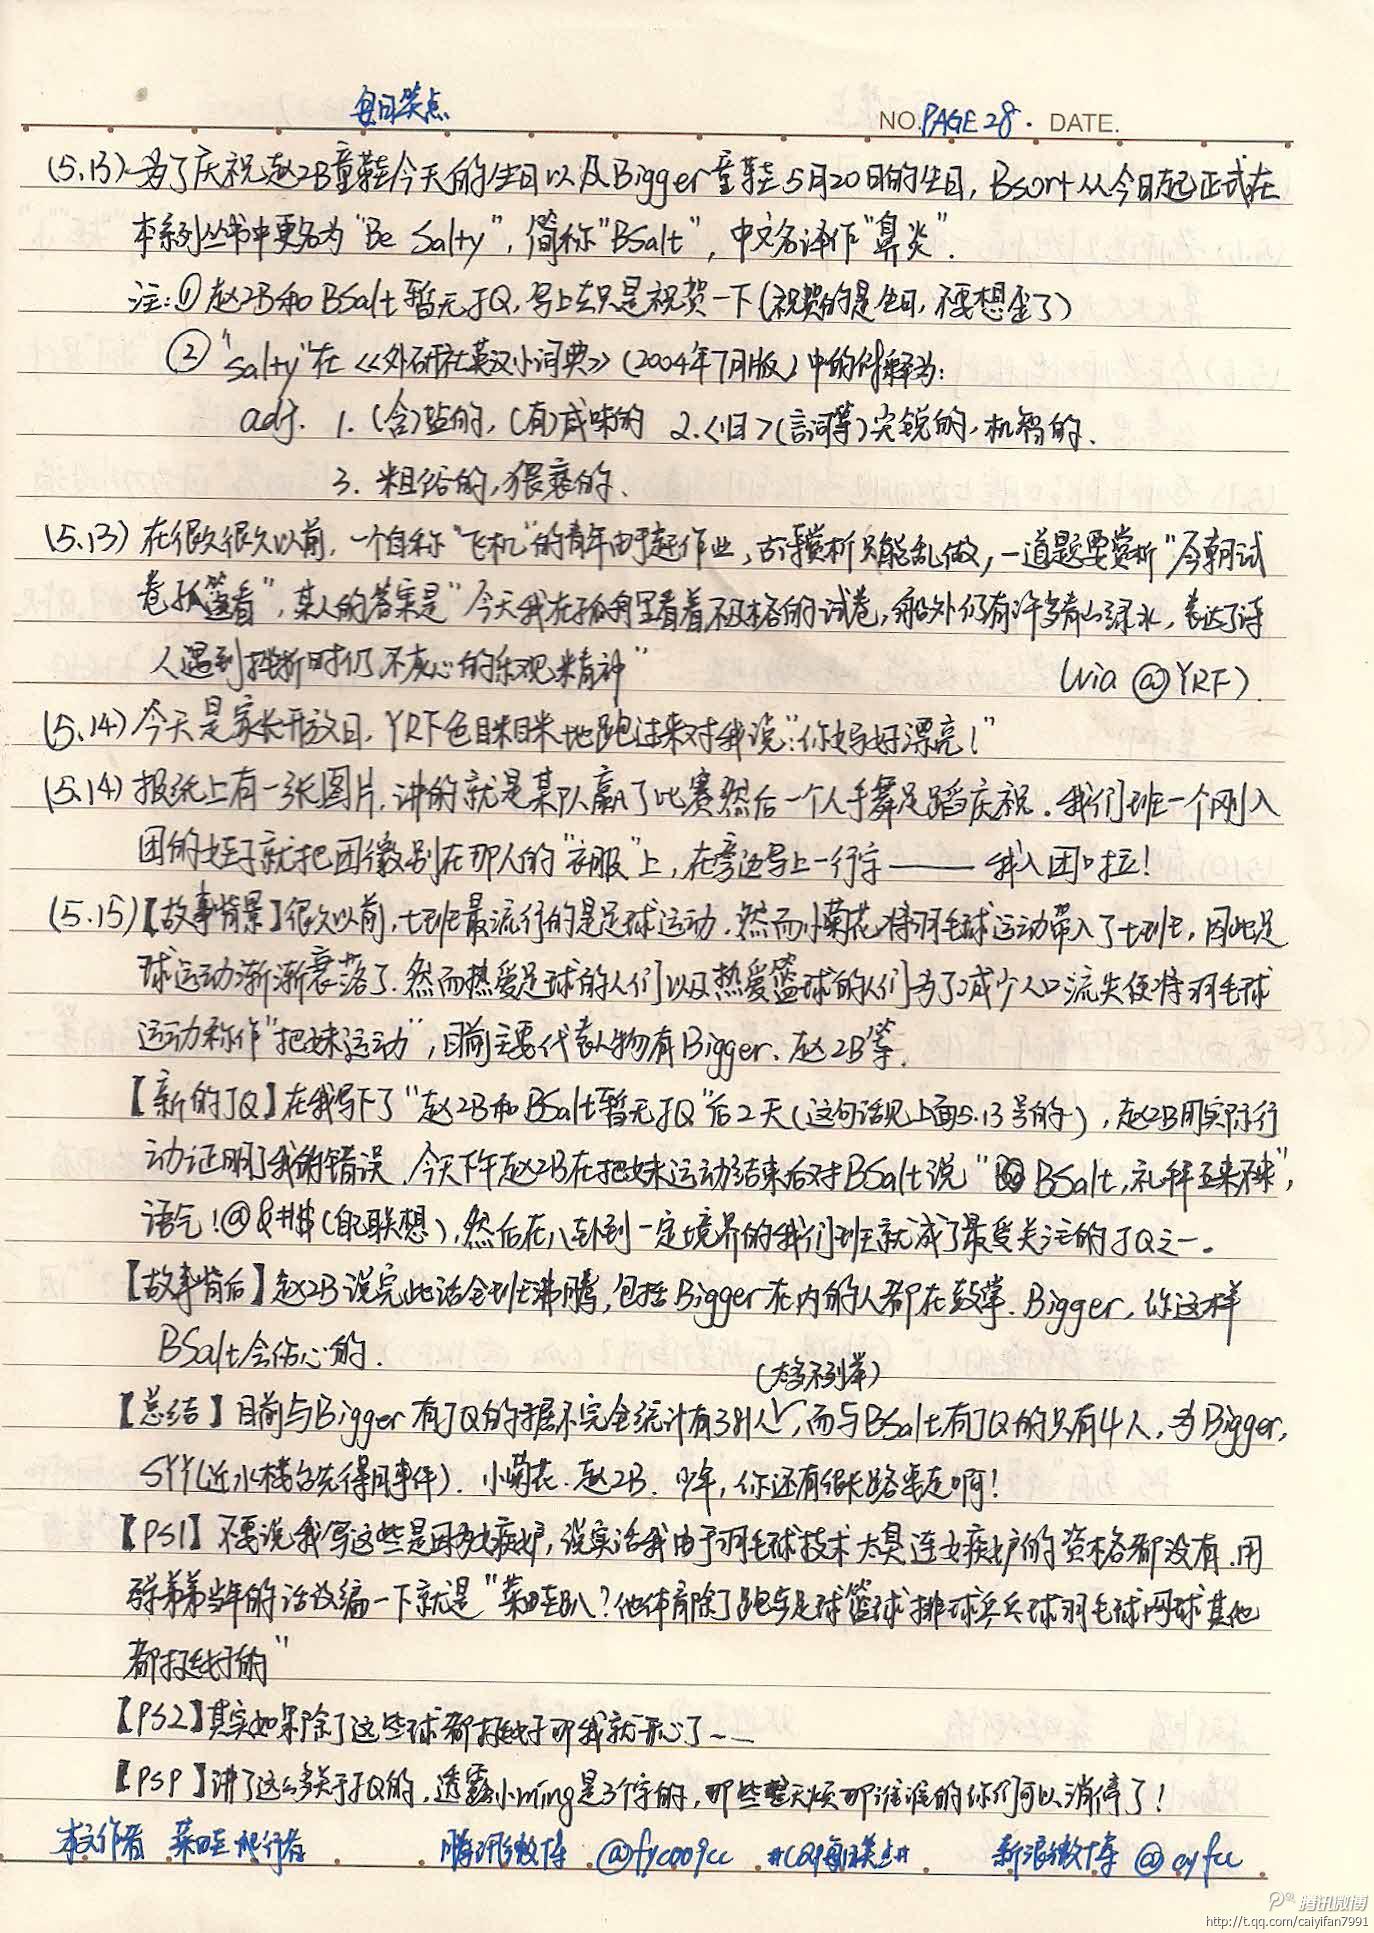 每日笑点
NO. PAGE 28. DATE.
(5.13) 为了庆祝赵2B童鞋今天的生日以及Bigger童鞋5月20日的生日, Bsort从今日起正式在
本系列丛书中更名为"Be Salty", 简称"BSalt", 中文名译作"鼻炎".
注:① 赵2B和BSalt暂无JQ, 写上去只是祝贺一下(祝贺的是生日, 不要想歪了)
② "salty"在《外研社英汉小词典》(2004年7月版)中的解释为:
adj. 1. (含)盐的, (有)咸味的 2.<旧>(言词等)尖锐的, 机智的、
3. 粗俗的, 猥亵的、
(5.13) 在很久很久以前, 一个自称"飞机"的青年由于赶作业, 古诗赏析只能乱做, 一道题要赏析"今朝试
卷孤篷看", 某人的答案是"今天我在孤舟里看着不及格的试卷, 船外仍有许多青山绿水, 表达了诗
人遇到挫折时仍不灰心的乐观精神"
(via @YRF).
(5.14) 今天是家长开放日, YRF色眯眯地跑过来对我说:"你妈好漂亮!"
(5.14) 报纸上有一张图片, 讲的就是某队赢了比赛然后一个人手舞足蹈庆祝. 我们班一个刚入
团的女子就把团徽别在那人的"衣服"上, 在旁边写上一行字——我入团啦!
(5.15)【故事背景】很久以前, 七班最流行的是足球运动. 然而小菊花将羽毛球运动带入了七班, 因此足
球运动渐渐衰落了. 然而热爱足球的人们以及热爱篮球的人们为了减少人口流失便将羽毛球
运动称作"把妹运动", 目前主要代表人物有Bigger、赵2B等.
【新的JQ】在我写下了"赵2B和BSalt暂无JQ"后2天(这句话见上面5.13号的), 赵2B用实际行
动证明了我的错误. 今天下午赵2B在把妹运动结束后对BSalt说" BSalt, 礼拜五来不来",
语气!@&#$(自己联想), 然后在八卦到一定境界的我们班就成了最受关注的JQ之一。
【故事背后】赵2B说完此话全班沸腾, 包括Bigger在内的人都在鼓掌. Bigger, 你这样
BSalt会伤心的.
(太多不列举)
【总结】目前与Bigger有JQ的据不完全统计有381人, 而与BSalt有JQ的只有4人, 为Bigger,
SYY(近水楼台先得月事件). 小菊花. 赵2B. 少年, 你还有很长路要走啊!
【PS1】不要说我写这些是因为嫉妒, 说实话我由于羽毛球技术太臭连嫉妒的资格都没有. 用
弟弟当年的话改编一下就是"菜畦趴?他体育除了跑步足球篮球排球乒乓球羽毛球网球其他
都挺好的"
【PS2】其实如果除了这些球都挺好那我就开心了~~
【PSP】讲了这么多关于JQ的, 透露小ming是3个字的, 那些整天烦那谁谁的你们可以消停了!
本文作者 菜畦爬行者 腾讯微博 @fyc009cc #CQP每日笑点# 新浪微博 @cyfcc
腾讯微博
http://t.qq.com/caiyifan7991